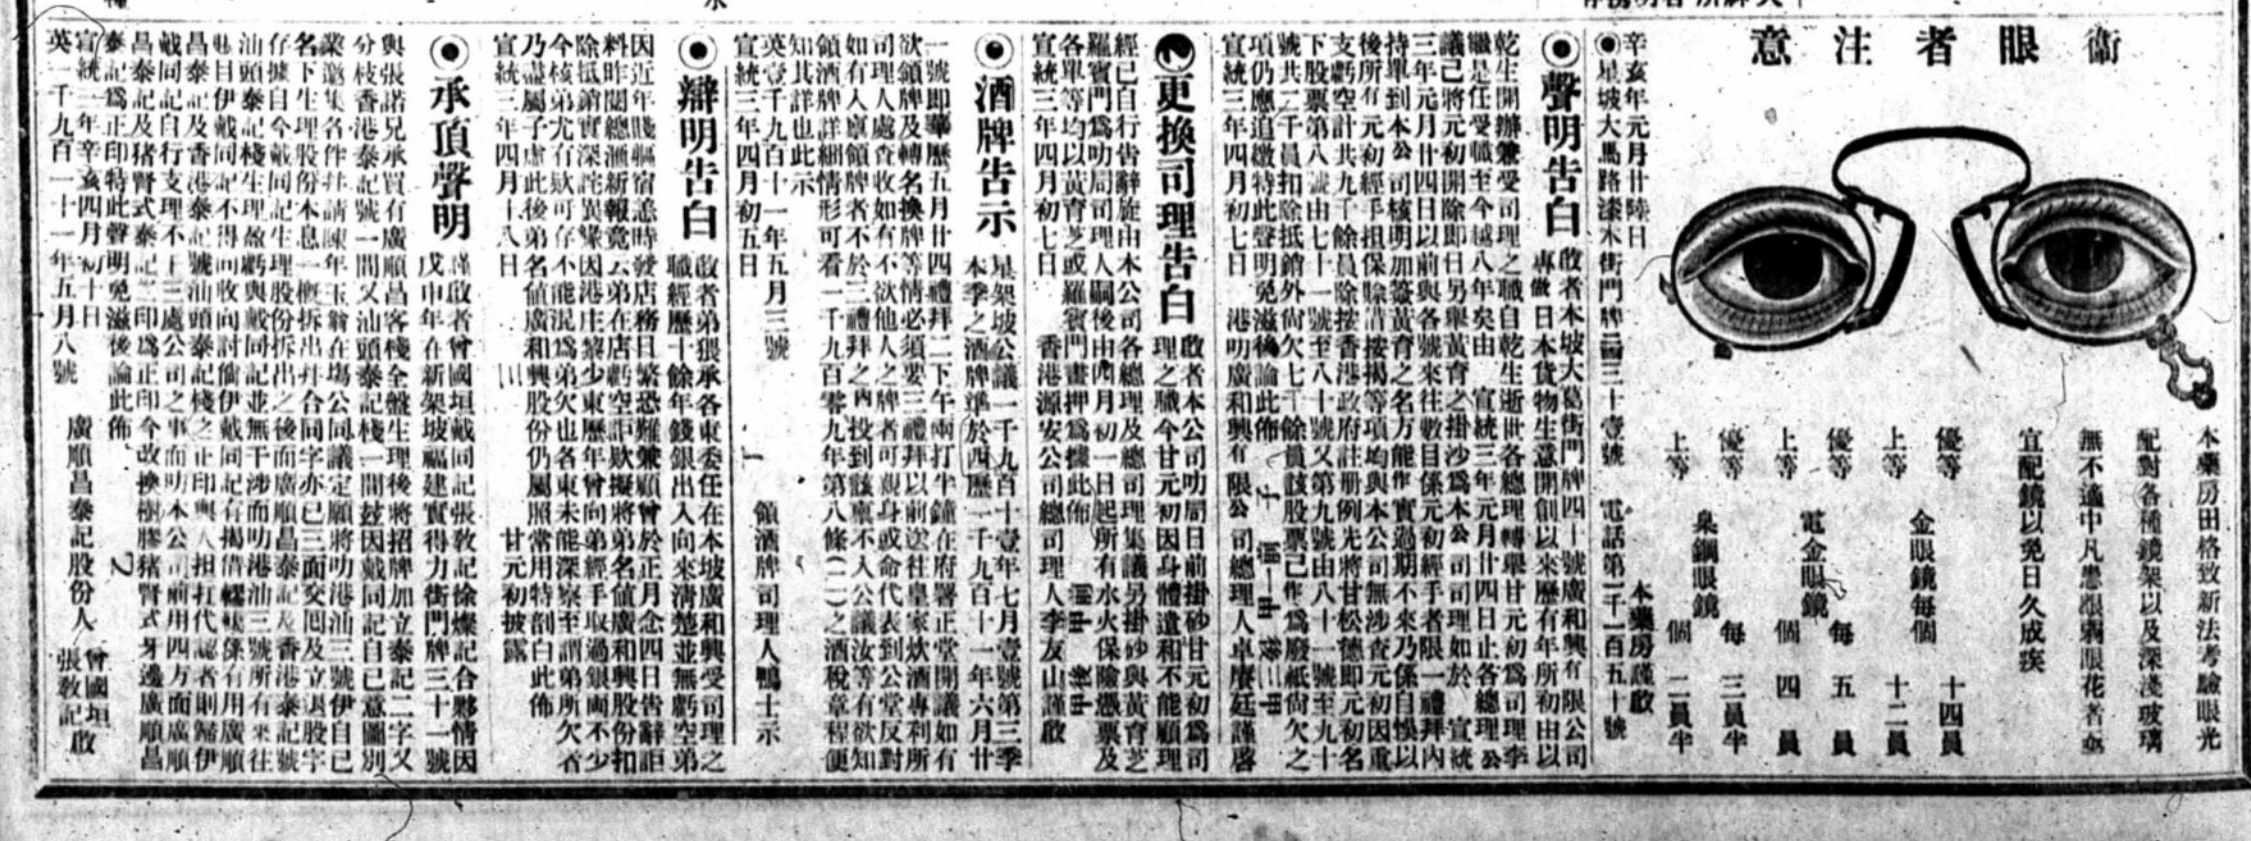 衛眼者注意
本藥房田格致新法考驗眼光
配對各種鏡架以及深淺玻璃
無不適中凡患眼弱眼花者
宜配鏡以免日久成疾
優等 金眼鏡每個 十四員
上等 十二員
優等 電金眼鏡 每 五員
上等 個 四員
優等 鋼眼鏡 每 三員半
上等 個 二員半
本藥房謹啟
辛亥年元月廿陸日
星坡大馬路漆木街門牌三十壹號 電話第一千一百五十號
聲明告白
啟者本坡大葛街門牌四十號廣和興有限公司
專做日本貨物生意開創以來歷有年所初由
乾生開辦兼受司理之職自乾生逝世各總理轉舉甘元初為司理李
繼是任受職至今越八年矣由 宣統三年元月廿四日止各總理公
議已將元初開除即日另舉黃育之掛沙為本公司司理如於 宣統
三年元月廿四日以前與各號來往數目係元初經手者限一禮拜內
持單到本公司核明加簽黃育之名方能作實過期不來乃係自悞以
後所有元初經手担保賒借按揭等項均與本公司無涉查元初因重
支虧空計共九千餘員除按香港政府註册例先將甘松德即元初名
下股票第八號由七十一號至八十號又第九號由八十一號至九十
號共二千員扣除抵銷外尚欠七千餘員該股票已作為廢紙尚欠之
項仍應追繳特此聲明免滋後論此佈
宣統三年四月初七日 港叻廣和興有限公司總理人卓賡廷謹啓
更換司理告白
啟者本公司叻局日前掛砂甘元初為司
理之職今甘元初因身體違和不能顧理
經已自行告辭旋由本公司各總理及總司理集議另掛砂與黃育芝
羅賓門為叻局司理人嗣後由四月初一日起所有水火保險憑票及
各單等均以黃育芝或羅賓門畫押為據此佈
宣統三年四月初七日 香港源安公司總司理人李友山謹啟
酒牌告示
星架坡公議一千九百十壹年七月壹號第三季
本季之酒牌準於西歷一千九百十一年六月廿
一號即華歷五月廿四禮拜二下午兩打半鐘在府署正堂開議如有
欲領牌及轉名換牌等情必須要三禮拜以前送往皇家炊酒專利所
司理人處查收如有不欲他人之牌者可親身或命代表到公堂反對
如有人稟領牌者不於三禮拜之內投到該稟不入公議汝等有欲知
領酒牌詳細情形可看一千九百零九年第八條(二)之酒稅章程便
知其詳也此示
英壹千九百十一年五月三號
宣統三年四月初五日 領酒牌司理人鴨士示
辯明告白
啟者弟猥承各東委任在本坡廣和興受司理之
職經歷十餘年錢銀出入向來清楚並無虧空弟
因近年賤軀宿恙時發店務日繁恐難兼顧曾於正月念四日告辭詎
料昨閱總滙新報竟云弟在店虧空詎欵擬將弟名值廣和興股份扣
除抵銷實深詫異緣因港庄寡少東歷年曾向弟經手取過銀両不少
今核弟尤有欵可存不能混為弟欠也各東未能深察至謂弟所欠者
乃盡屬子虛此後弟名值廣和興股份仍屬照常用特剖白此佈
宣統三年四月十八日 甘元初披露
承頂聲明
謹啟者曾國垣戴同記張教記徐燦記合夥情因
戊申年在新架坡福建實得力街門牌三十一號
與張諾兄承買有廣順昌客棧全盤生理後將招牌加立泰記二字又
分枝香港泰記號一間又汕頭泰記棧一間茲因戴同記自己意圖別
業邀集各伴并請陳年玉翁在塲公同議定願將叻港汕三號伊自己
名下生理股份本息一概拆出并合同字亦已三面交囘及立退股字
存據自今戴同記生理股份拆出之後而廣順昌泰記及香港泰記號
汕頭泰記棧生理盈虧與戴同記並無干涉而叻港汕三號所有來往
賬目伊戴同記不得同收向討倘伊戴同記有揭借轇轕係有用廣順
昌泰記及香港泰記號汕頭泰記棧之正印與人担打代認者則歸伊
戴同記自行支理不干三處公司之事而叻本公司前用四方面廣順
昌泰記及猪腎式泰記二印為正印今改換樹膠猪腎式牙邊廣順昌
泰記為正印特此聲明免滋後論此佈
宣統三年辛亥四月初十日
英一千九百一十一年五月八號 廣順昌泰記股份人 曾國垣 張教記 啟